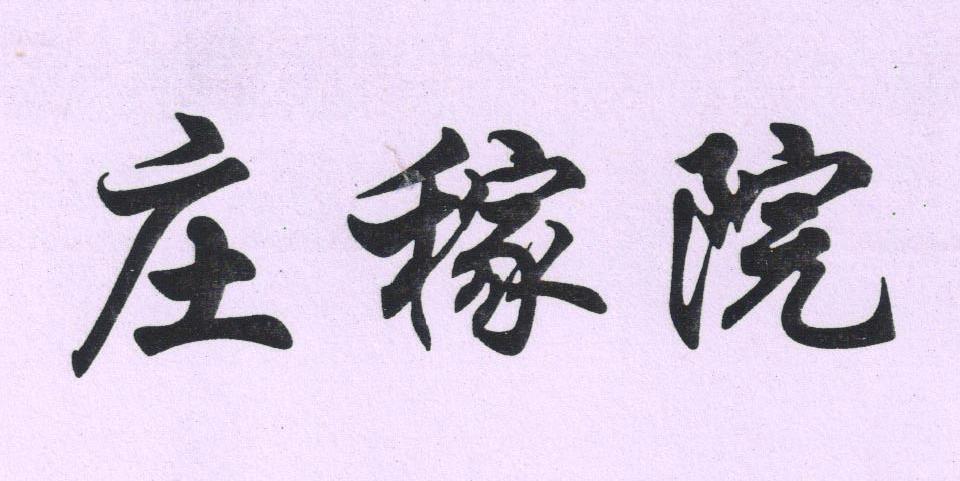 庄稼院